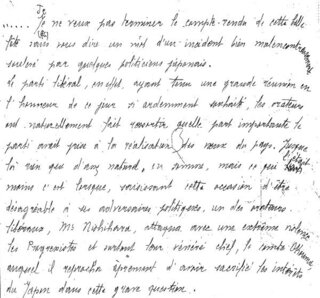 Je
..... Je ne veux pas terminer le compte-rendu de cette belle
fête sans vous dire un mot d'un incident bien malencontreusement
soulevé par quelques politiciens japonais.
Le parti libéral, en effet, ayant tenu une grande réunion en
l'honneur de ce jour si ardemment souhaité, les orateurs
ont naturellement fait ressortir quelle part importante le
parti avait prise à la réalisation des vœux du pays. Jusque
là rien que d'assez naturel, en somme, mais ce qui
moins c'est lorsque, saisissant cette occasion d'être
désagréable à ses adversaires politiques, un des orateurs
libéraux, Mr Nishihara, attaqua avec une extrême violence
les Progressistes et surtout leur vénéré chef, le comte Okuma,
auquel il reprocha âprement d'avoir sacrifié les intérêts
du Japon dans cette grave question.